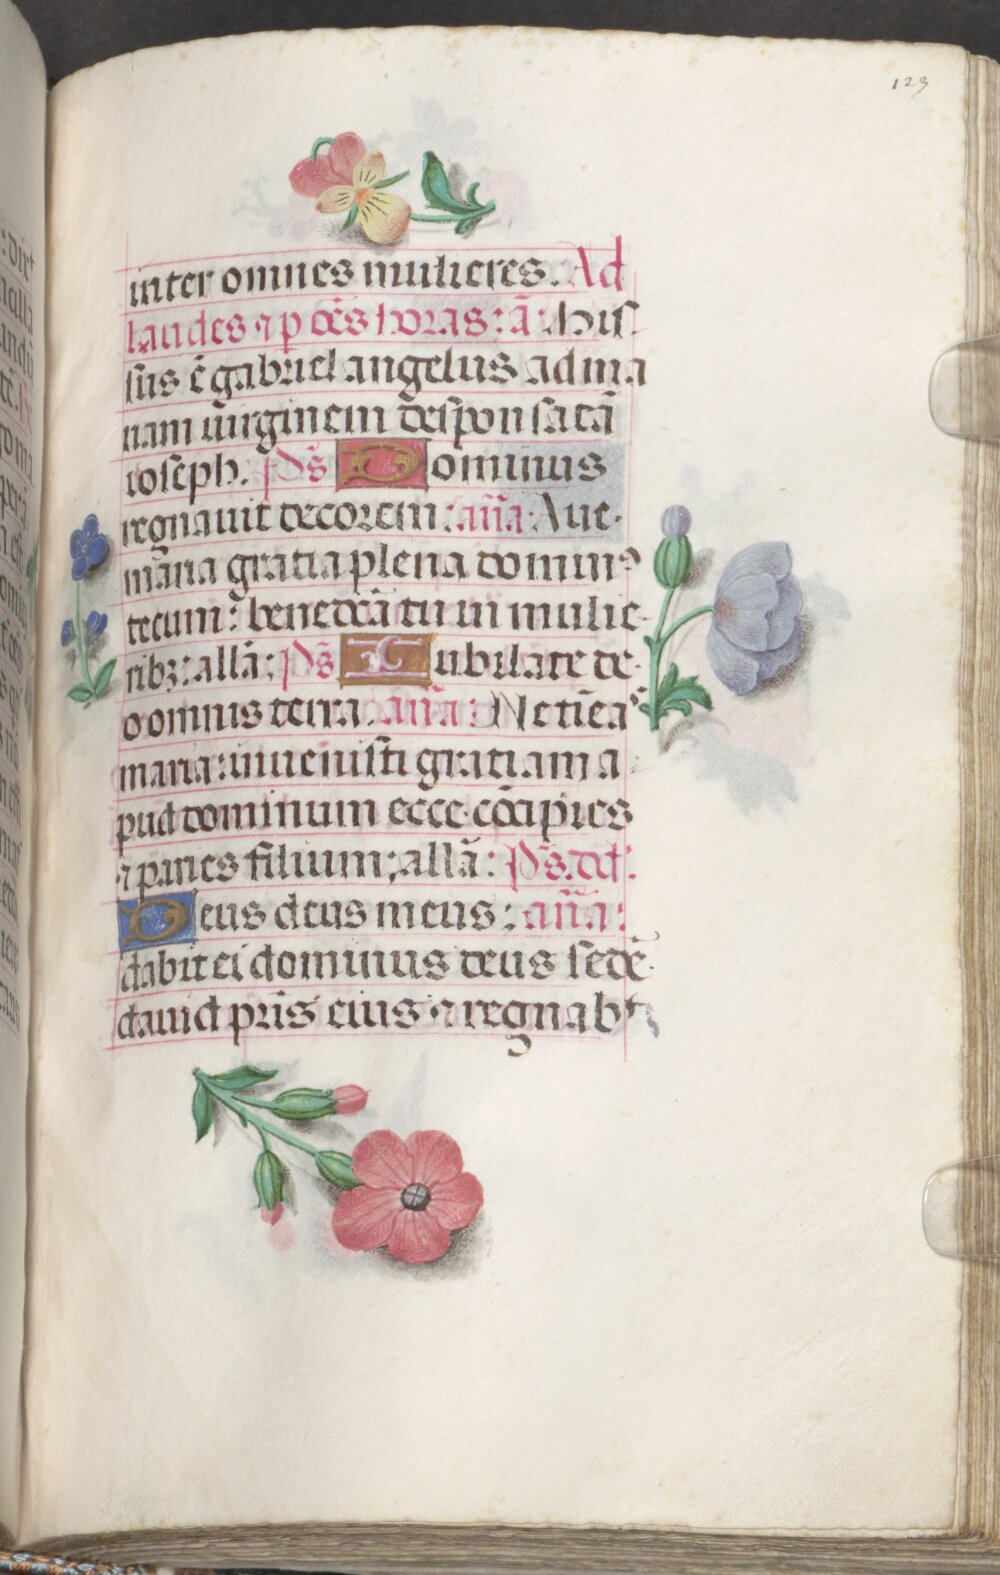 123
inter omnes mulieres. Ad
laudes ⁊ p oẽs horas: ã: Mis
sus ẽ gabriel angelus ad ma
riam virginem desponsatã
ioseph. Ps̃ Dominus
regnauit decorem: añа: Aue
maria gratia plena dominꝰ
tecum: benedcã tu in mulie
ribꝫ: allã: Ps̃ Iubilate de
o omnis terra. añа: Ne tiẽaˢ
maria: inuenisti gratiam a
pud dominum ecce cõcipies
⁊ paries filium: allã: Ps̃. dd:
Deus deus meus: añа:
dabit ei dominus deus sedẽ
dauid pris̃ eius ⁊ regnabt